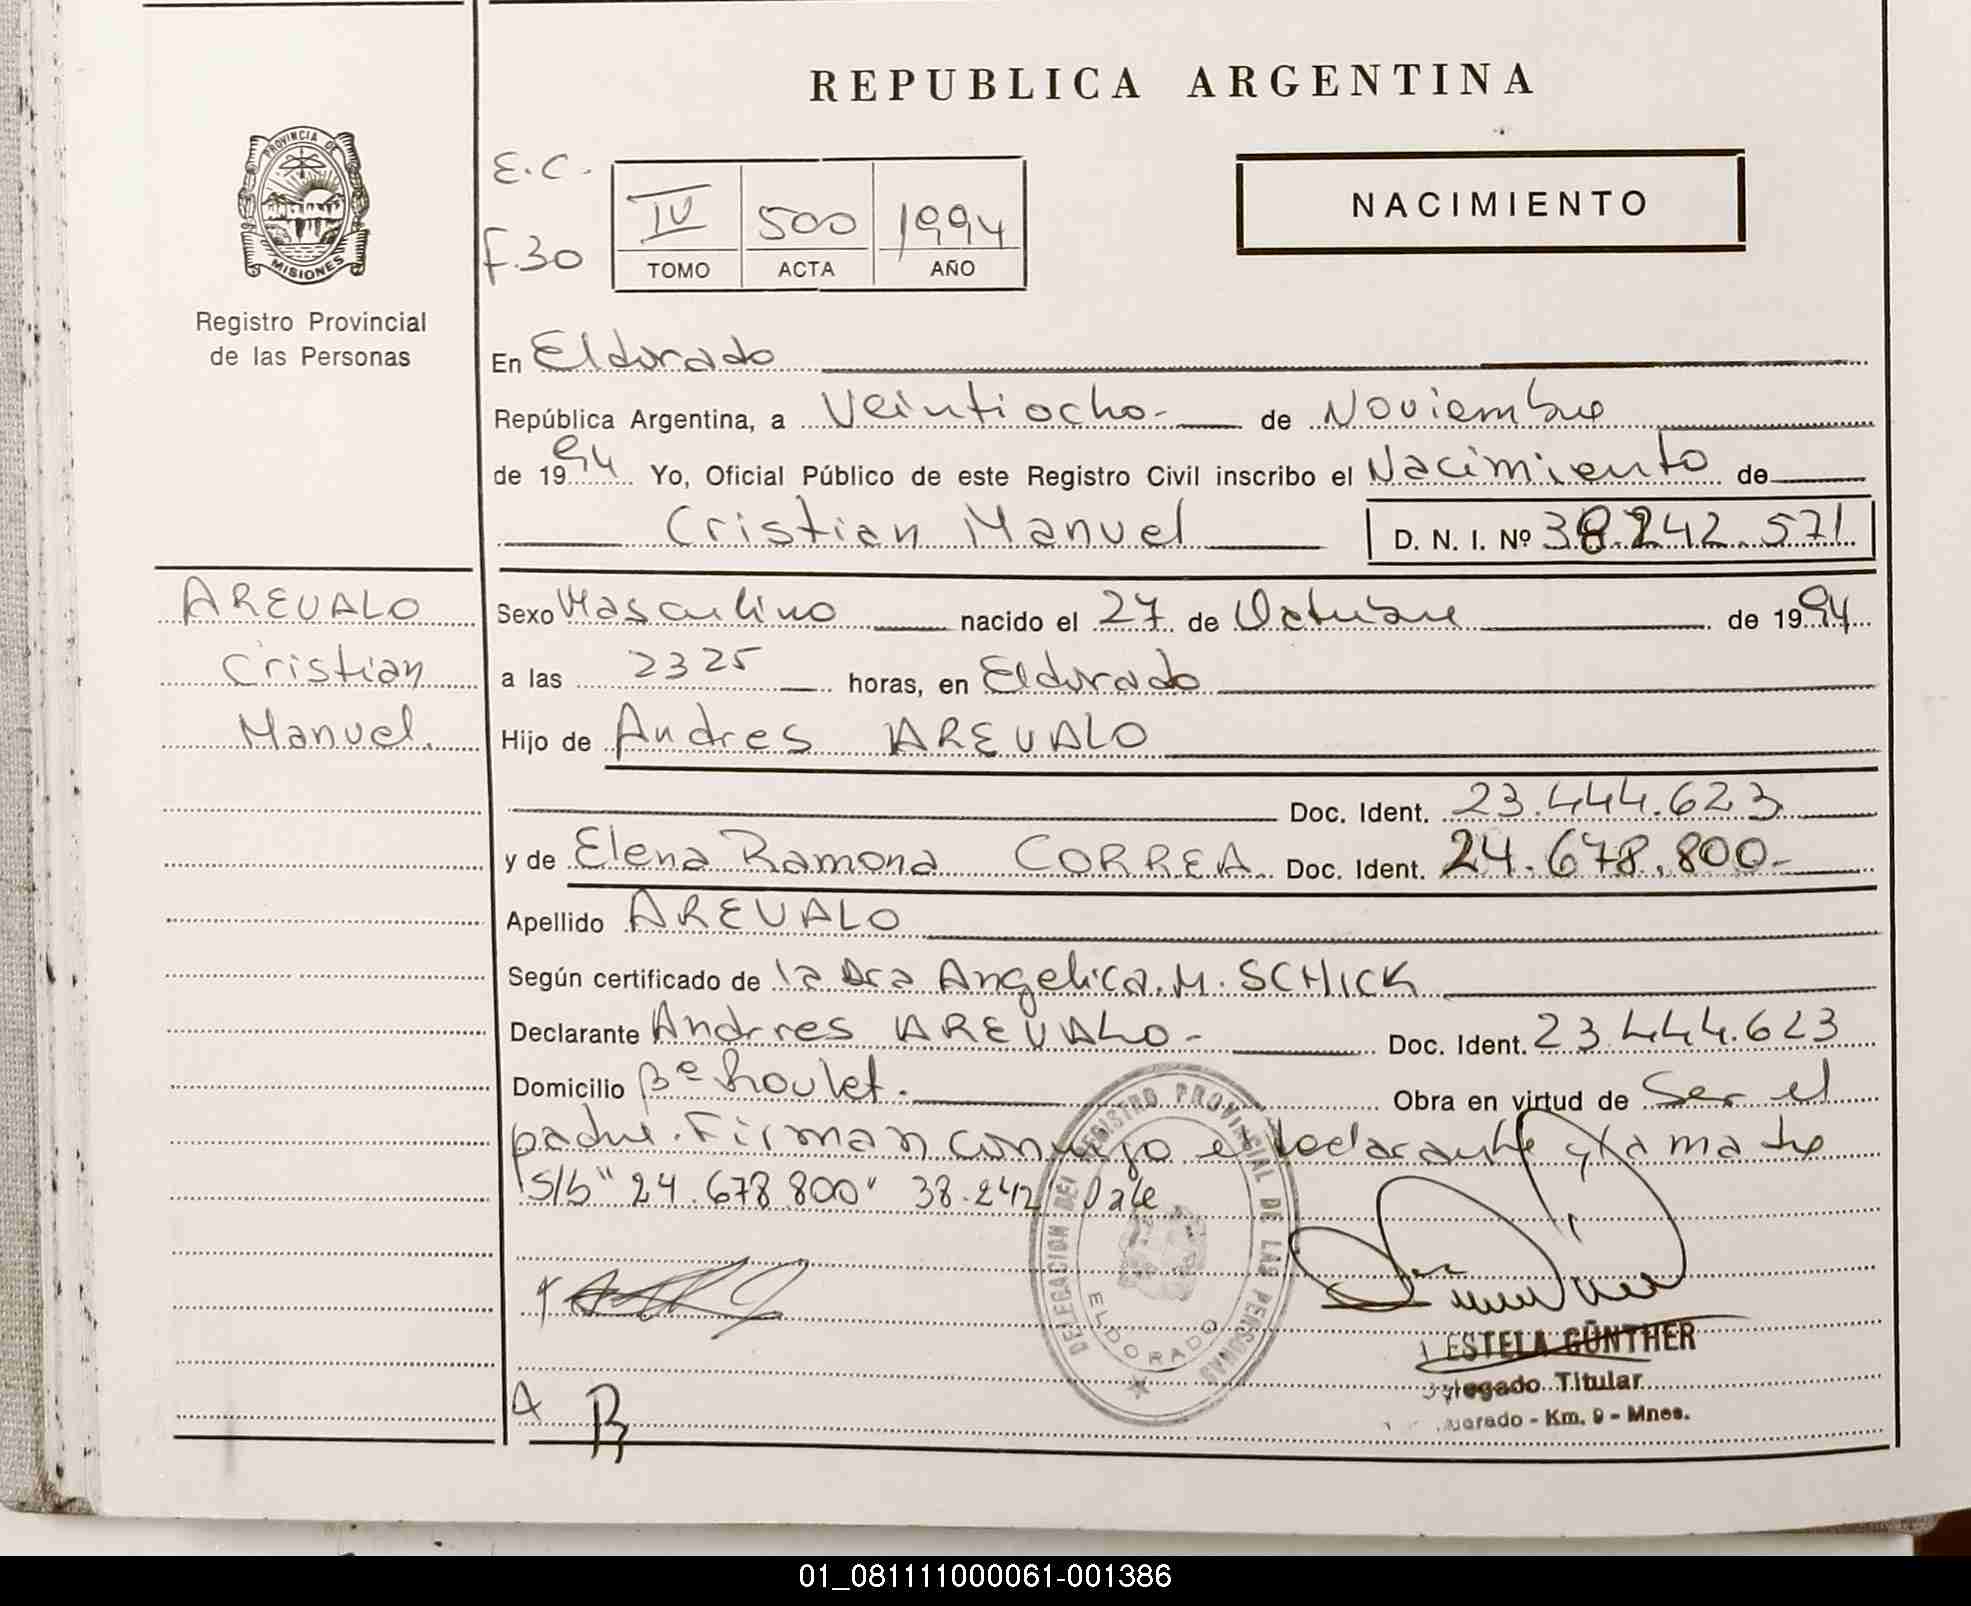 REPUBLICA ARGENTINA
PROVINCIA DE
MISIONES
Registro Provincial
de las Personas
E.C.
F.30
IV 500 1994
TOMO ACTA AÑO
NACIMIENTO
En Eldorado
República Argentina, a Veintiocho.- de Noviembre
de 1994 Yo, Oficial Público de este Registro Civil inscribo el Nacimiento de
Cristian Manuel D. N. I. Nº 38.242.571
AREVALO
Cristian
Manuel.
Sexo Masculino nacido el 27 de Octubre de 1994
a las 2325 horas, en Eldorado
Hijo de Andres AREVALO
Doc. Ident. 23.444.623
y de Elena Ramona CORREA Doc. Ident. 24.678.800-
Apellido AREVALO
Según certificado de la Dra Angelica.M. SCHICK
Declarante Andrres AREVALO- Doc. Ident. 23.444.623
Domicilio Bº Roulet. Obra en virtud de Ser el
padre. Firman conmigo el declarante y la madre
S/b "24.678.800" 38.242 Vale
DELEGACION DEL REGISTRO PROVINCIAL DE LAS PERSONAS
ELDORADO
ESTELA GÜNTHER
Delegado Titular
Km. 9 - Mnes.
01_081111000061-001386